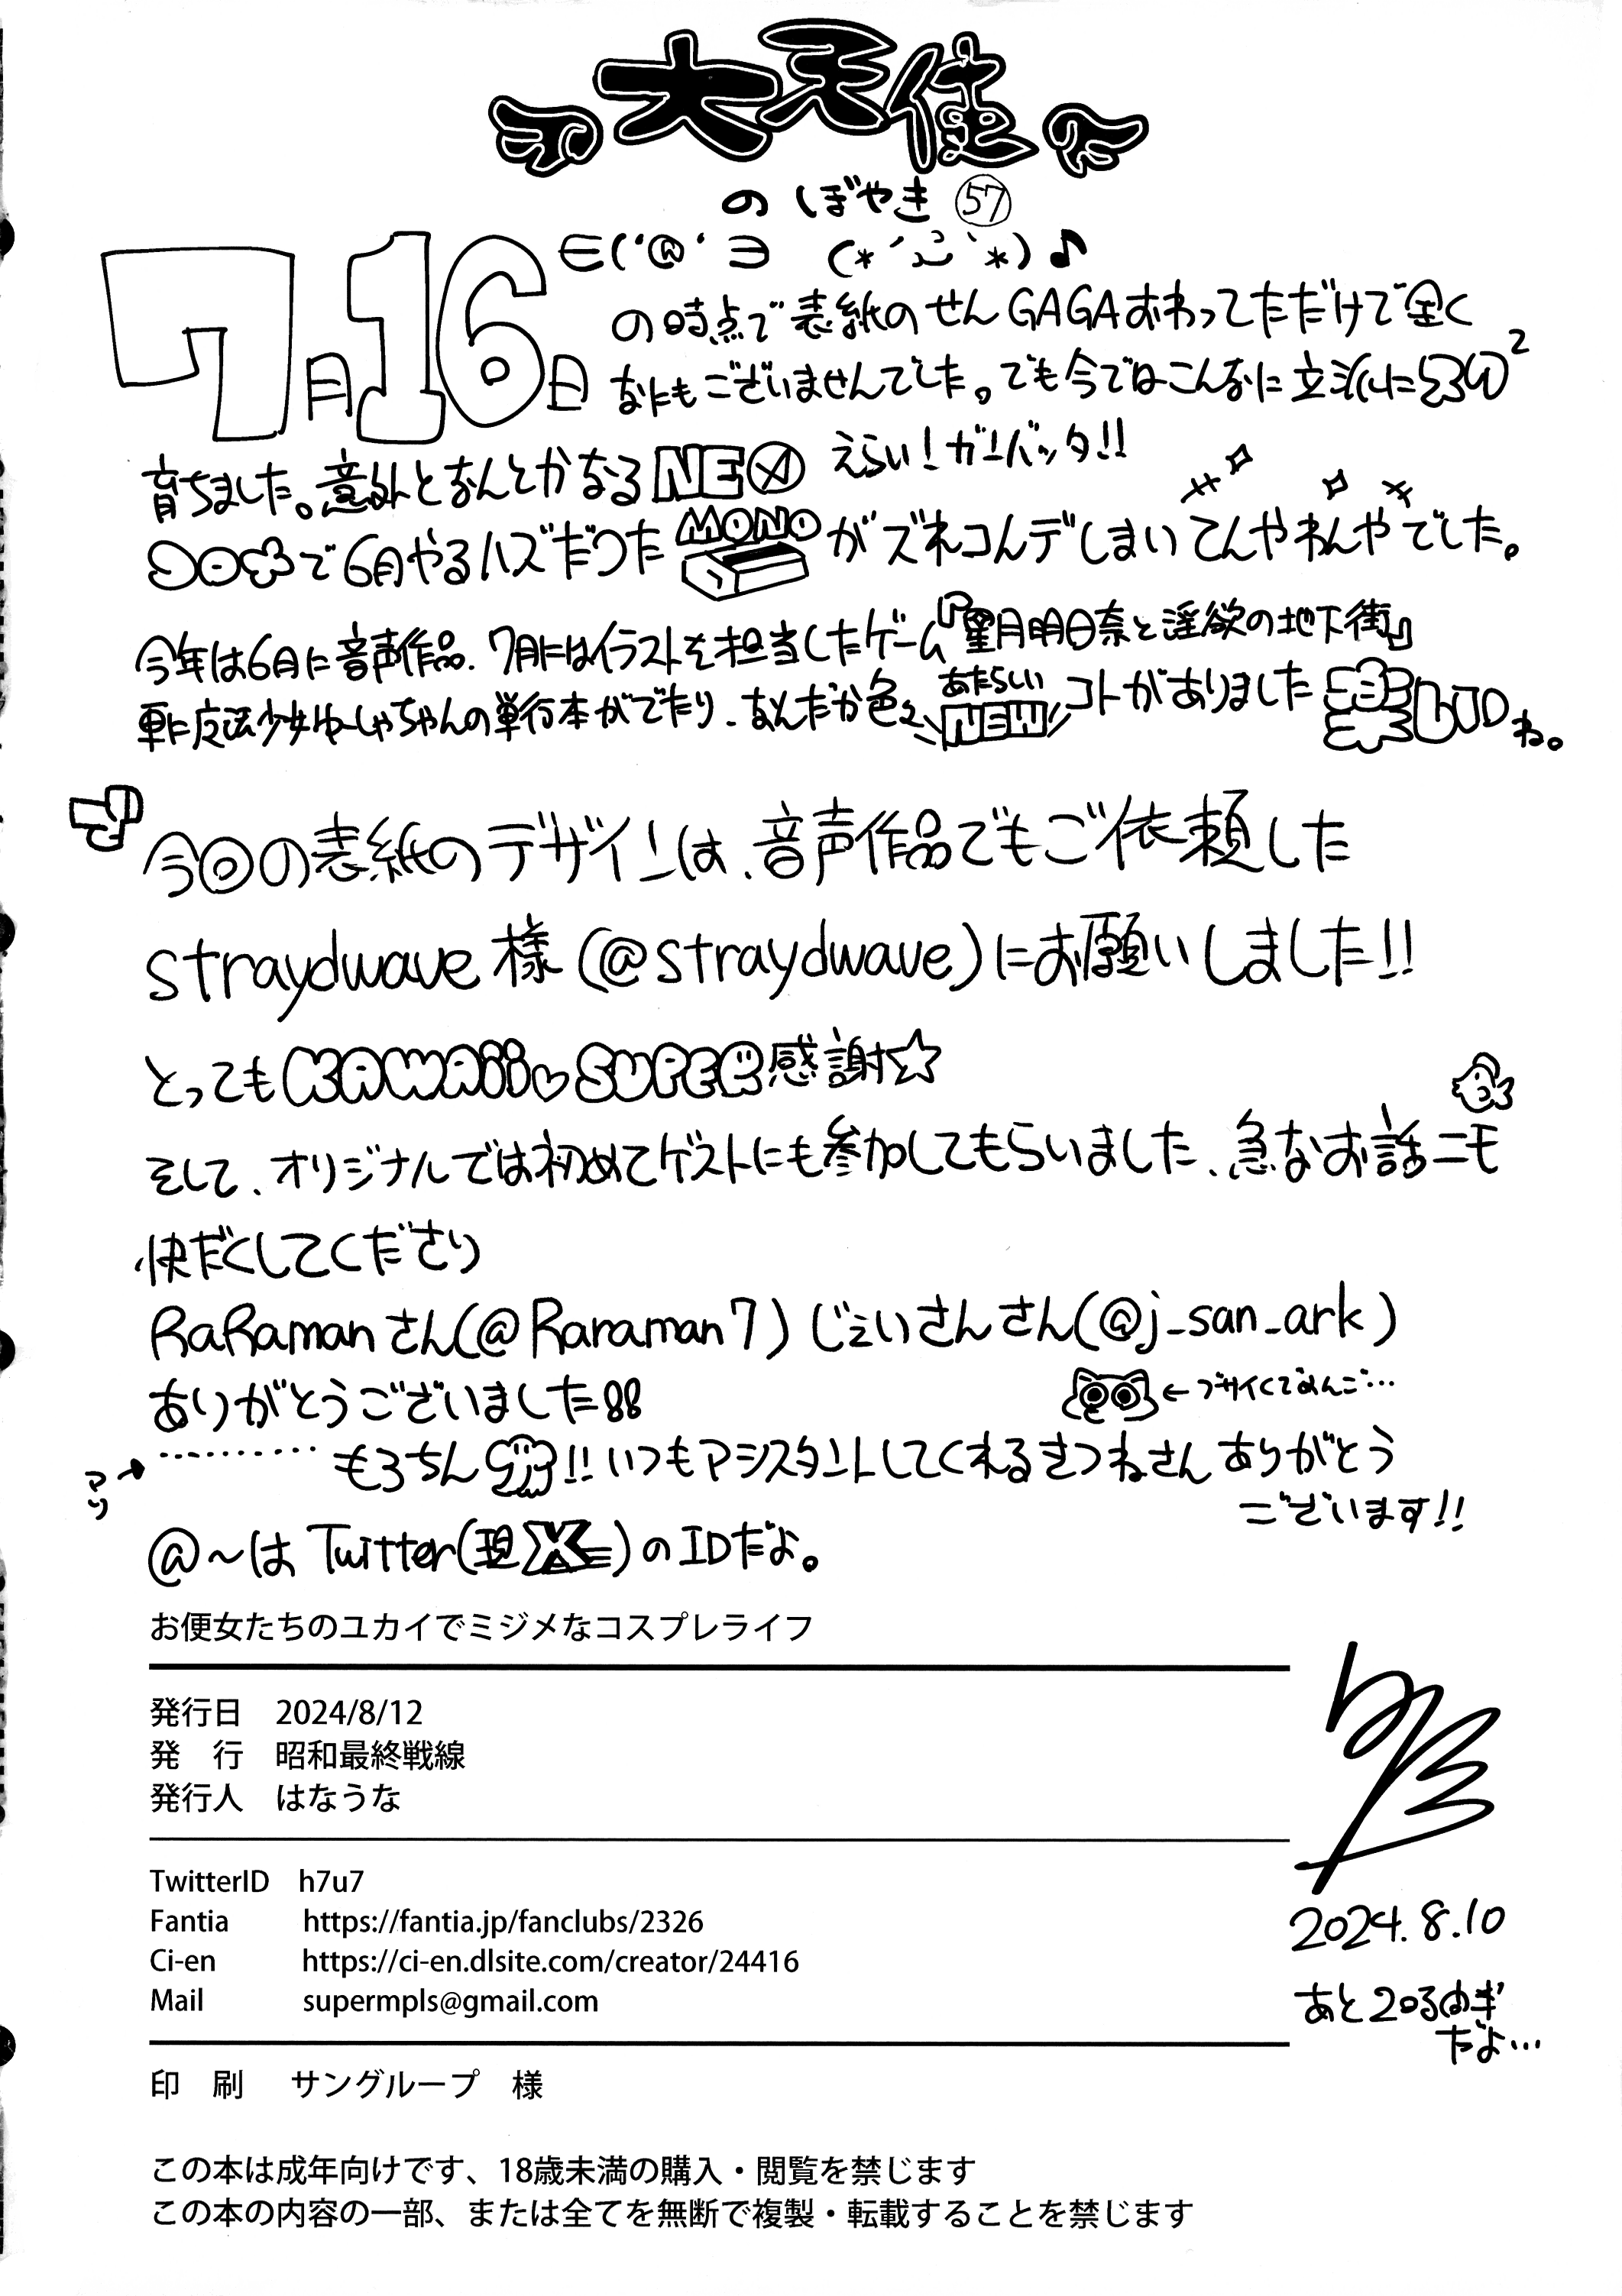 大天使
のぼやき 57
∈('@'∋ (*´ `*)♪
7月16日
の時点で表紙のせんGAGAおわってただけで全く
なにもございませんでした。でも今ではこんなに立派に
育ちました。意外となんとかなる えらい!ガンバッタ!!
で6月やるハズだった MONO がズネコんデしまい てんやわんやでした。
今年は6月に音声作品、7月にはイラストを担当したゲーム『星月明日奈と淫欲の地下街』
更に 少女ゆーしゃちゃんの単行本がでたり、なんだか色々 あたらしい NEW コトがありました ね。
今回の表紙のデザインは、音声作品でもご依頼した
straydwave 様 (@straydwave)にお願いしました!!
とっても KAWAii♡SUPER感謝☆
そして、オリジナルでは初めてゲストにも参加してもらいました、急なお話ニモ
快だくしてくださり
RaRamanさん(@Raraman7) じぇいさんさん(@j_san_ark)
ありがとうございました!!
←ブサイくてごめんご…
マリ→ ………… もろちん !! いつもアシスタントしてくれるきつねさんありがとう
ございます!!
@~は Twitter(現X)のIDだよ。
お便女たちのユカイでミジメなコスプレライフ
発行日 2024/8/12
発 行 昭和最終戦線
発行人 はなうな
TwitterID h7u7
Fantia https://fantia.jp/fanclubs/2326
Ci-en https://ci-en.dlsite.com/creator/24416
Mail supermpls@gmail.com
2024.8.10
だよ…
印 刷 サングループ 様
この本は成年向けです、18歳未満の購入・閲覧を禁じます
この本の内容の一部、または全てを無断で複製・転載することを禁じます